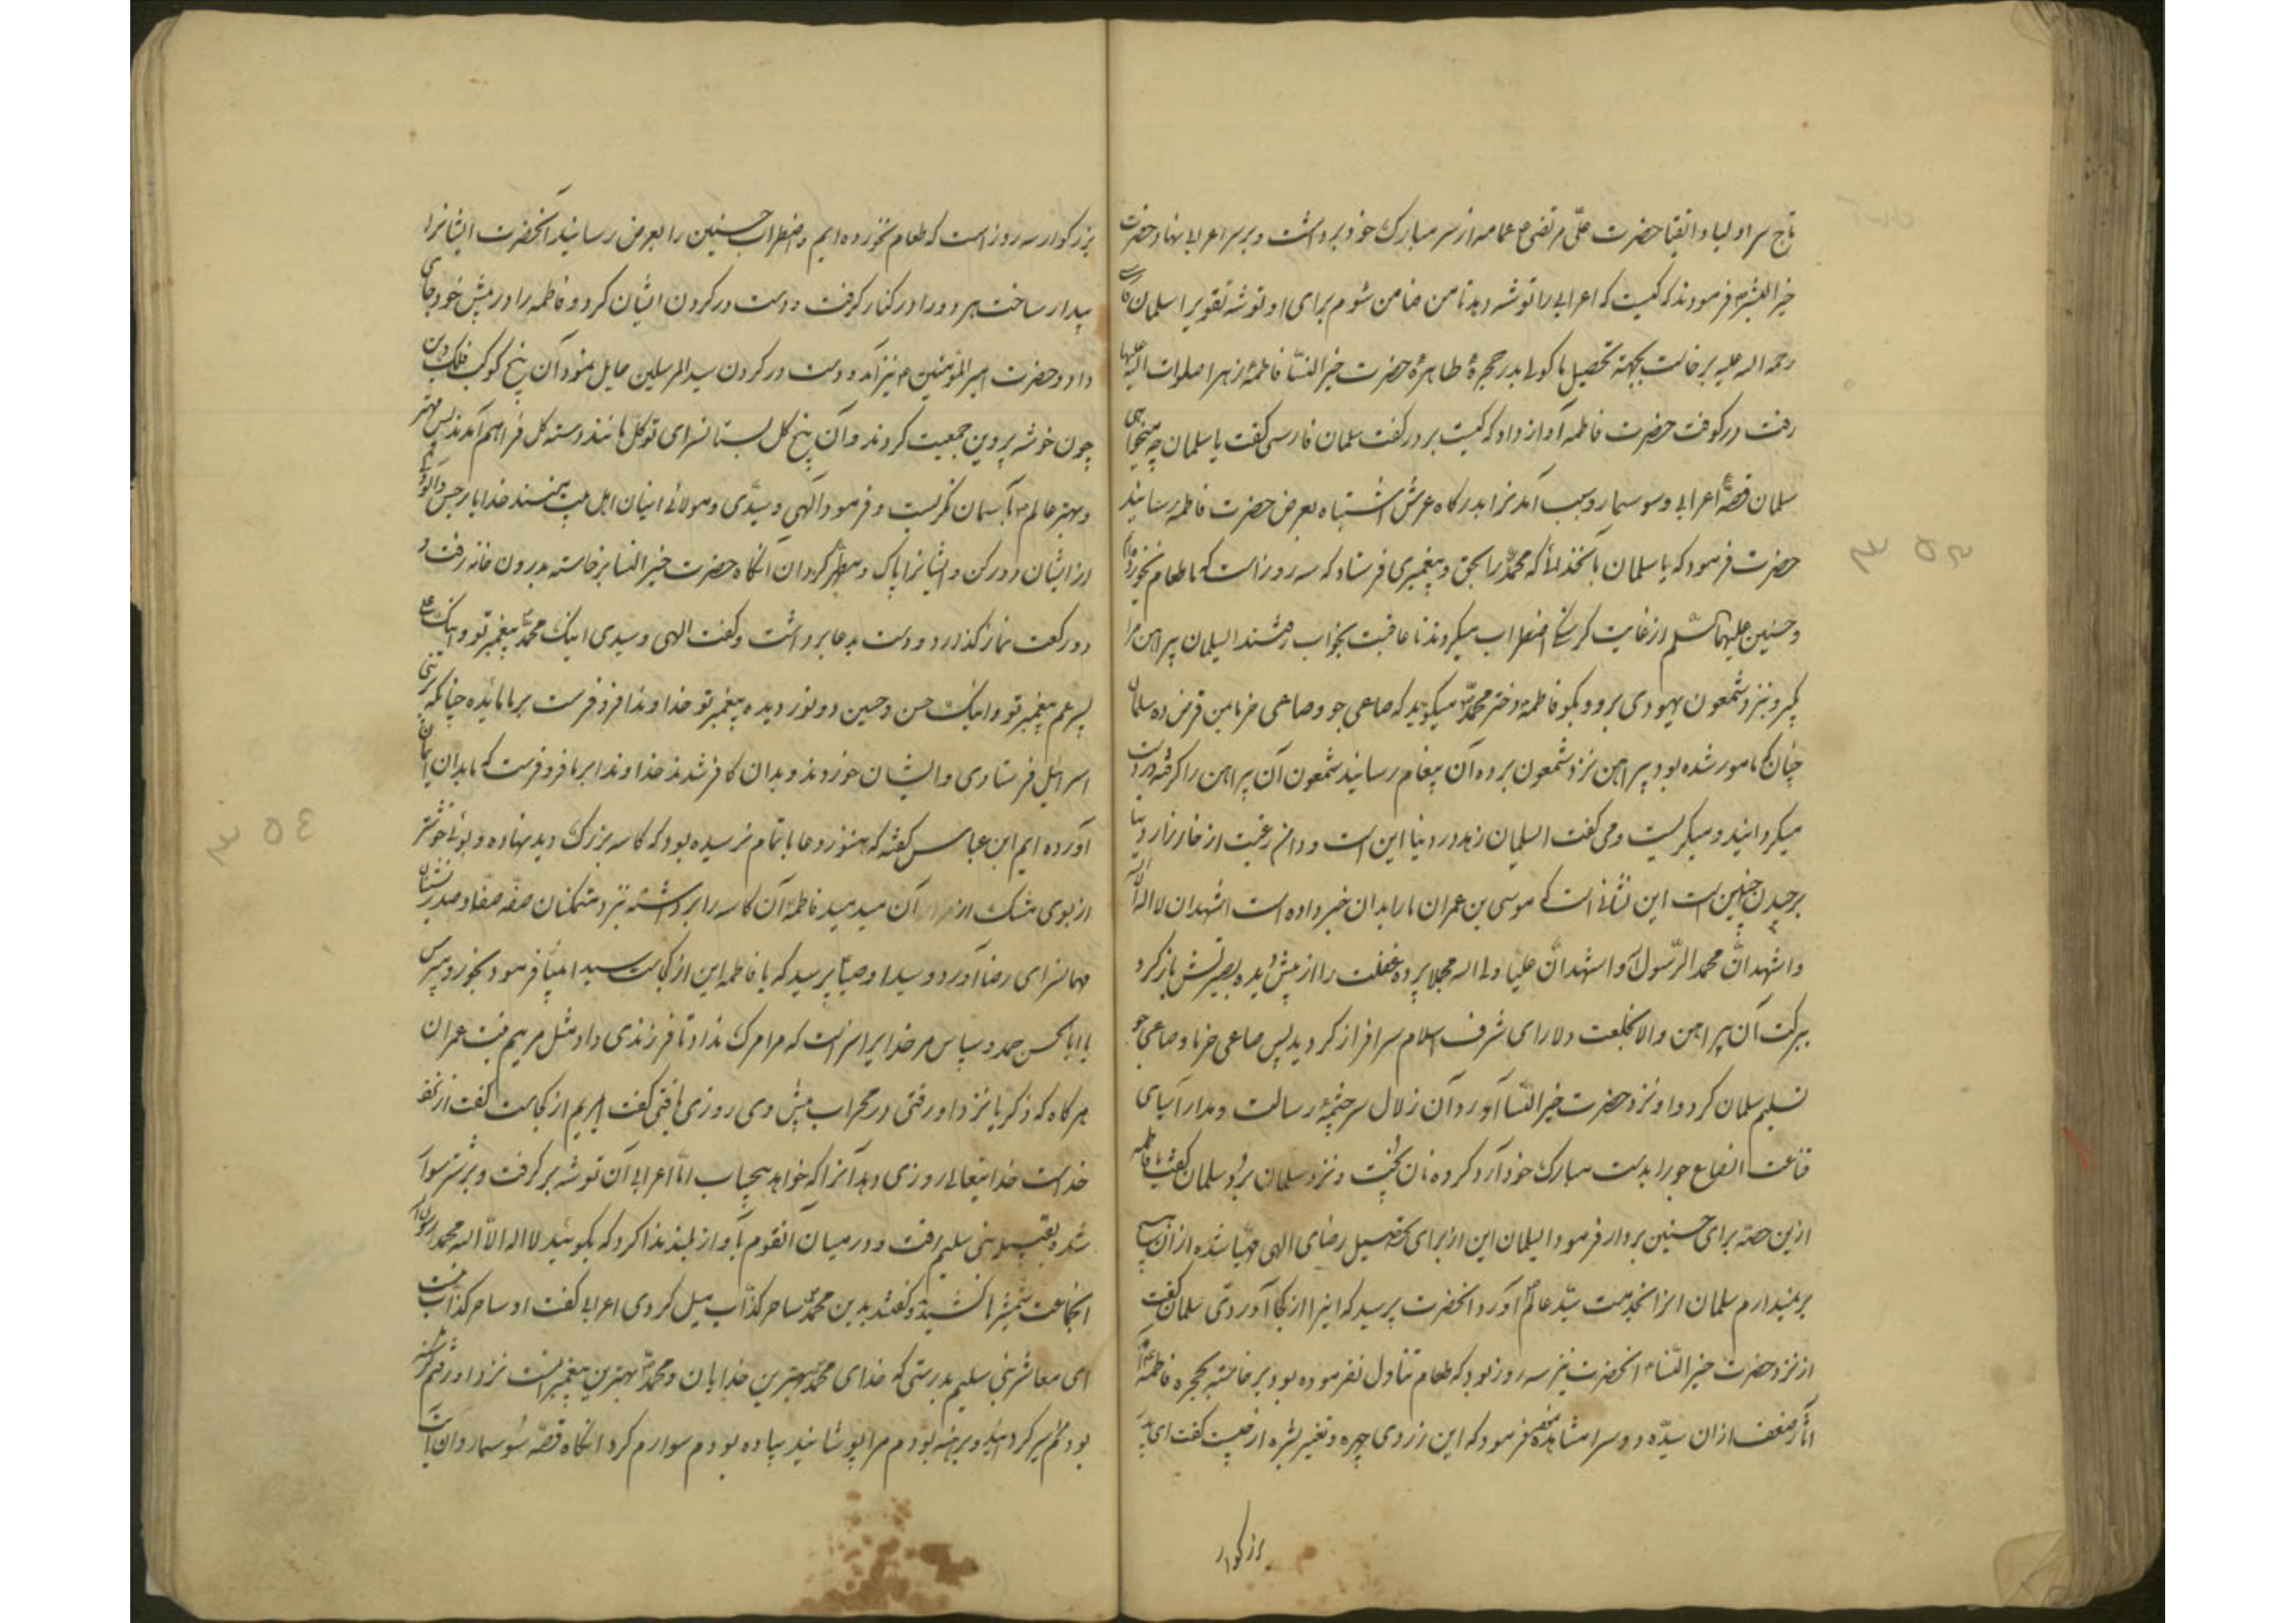 تاج سر اولیا و اتقیا حضرت علی مرتضی ع عمامه از سر مبارک خود برداشت و بر سر اعرابی نهاد و حضرت
خیر البشر فرمودند که کیست که اعرابی را توشه دهد تا من ضامن شوم برای او توشه تقوی را سلمان فارسی
رحمه اله علیه برخاست بجهته تحصیل ماکولی بدر حجرهٔ طاهرهٔ حضرت خیر النسّا فاطمهٔ زهرا صلوات اللّه علیها
رفت در کوفت حضرت فاطمه آواز داد که کیست بر در گفت سلمان فارسی گفت یا سلمان چه میخواهی
سلمان قصهٔ اعرابی و سوسمار و سبب آمدنرا بدرگاه عرش اشتباه بعرض حضرت فاطمه رسانید
حضرت فرمود که یا سلمان بآنخدائی که محمد را بحق و پیغمبری فرستاد که سه روز است که ما طعام نخورده‌ایم
و حسنین علیهما السّلم از غایت گرسنگی اضطراب میکردند تا عاقبت بخواب رفتند ایسلمان پیراهن مرا
بگیر و بنزد شمعون یهودی برو و بگو فاطمه دختر محمد میگوید که صاعی جو و صاعی خرما بمن قرض ده سلمان
چنان که مامور شده بود پیراهن نزد شمعون برده آن پیغام رسانید شمعون آن پیراهن را گرفته در دست
میگردانید و میگریست و می گفت ایسلمان زهد در دنیا این است و دامن رغبت از خارزار دنیا
برچیدن چنین است این نشانی است که موسی بن عمران ما را بدان خبر داده است اشهد ان لا اله الّا اللّه
و اشهد انّ محمد الرّسول اللّه و اشهد انّ علیّا ولی اله مجملا پردهٔ غفلت را از پیش دیده بصیرتش باز کرد
ببرکت آن پیراهن والا بخلعت دلارای شرف اسلام سرافراز گردید پس صاعی خرما و صاعی جو
تسلیم سلمان کرد و او نزد حضرت خیر النسّا آورد آن زلال سرچشمهٔ رسالت و مدار آسیای
قناعت انصاع جو را بدست مبارک خود آرد کرده نان پخت و نزد سلمان برد سلمان گفت یا فاطمه
ازین حصّه برای حسنین بردار فرمود ایسلمان این از برای تحصیل رضای الهی مهیّا شده از آن بهیچ
بر نمیدارم سلمان انرا بخدمت سیّد عالم آورد انحضرت پرسید که اینرا از کجا آوردی سلمان گفت
از نزد حضرت خیر النّساء انحضرت نیز سه روز بود که طعام تناول نفرموده بود برخاسته بحجره فاطمه آمد
اثار ضعف از ان سیّده دو سرا مشاهده فرمود که این زردی چهره و تغییر بشره از چیست گفت ای پدر
بزرگوار
بزرگوار سه روز است که طعام نخورده ایم و اضطراب حسنین را بعرض رسانید آنحضرت ایشانرا
بیدار ساخت هر دو را در کنار گرفت و دست در گردن ایشان کرد و فاطمه را در پیش خود جای
داد و حضرت امیر المؤمنین ع نیز آمد و دست در گردن سید المرسلین حمایل نمود آن پنج کوکب فلک دین
چون خوشه پروین جمعیت کردند و آن پنج گل بستانسرای توکّل مانند دسته گل فراهم آمدند پس مهتر
و بهتر عالم بآسمان نگریست و فرمود آلهی و سیّدی و مولائی اینان اهل بیت منند خدایا رجس و آلودگی
از ایشان دور کن و ایشانرا پاک و مطهّر گردان انگاه حضرت خیر النسا برخاسته بدرون خانه رفت و
دو رکعت نماز گذارد و دست بدعا برداشت و گفت الهی و سیدی اینک محمد پیغمبر تو و اینک علی
پسر عم پیغمبر تو و اینک حسن و حسین دو نور دیده پیغمبر تو خداوندا فرو فرست بر ما مائیده چنانکه بر بنی
اسرائیل فرستادی و ایشان خوردند و بدان کافر شدند خداوندا بر ما فرو فرست که ما بدان ایمان
آورده ایم ابن عباس گفته که هنوز دعا باتمام نرسیده بود که کاسه بزرگ دید نهاده و بوئی خوشتر
از بوی مشک از آن میدمید فاطمه آن کاسه را برداشته نزد متمکنان صفّه صفّا و صدر نشینان
مهمانسرای رضا آورد و سید اوصیا پرسید که یا فاطمه این از کجاست سید انبیّا فرمود بخور و مپرس
یا ابا الحسن حمد و سپاس مر خدایرا سزاست که مرا مرگ نداد تا فرزندی داد مثل مریم بنت عمران
هرگاه که ذکریا نزد او رفتی در محراب پیش وی روزی یافتی گفت ایمریم از کجاست گفت از نزد
خداست خدایتعالی روزی دهد آنرا که خواهد بیحساب امّا اعرابی آن توشه بر گرفت و بر شتر سوار
شد و بقبیله بنی سلیم رفت و در میان آنقوم بآواز بلند ندا کرد که بگوئید لا اله الّا اله محمد رسول اللّه
انجماعت شمشیرها کشیدند و گفتند بدین محمد ساحر کذّاب میل کردی اعرابی گفت او ساحر کذّاب نیست
ای معاشر بنی سلیم بدرستی که خدای محمد بهترین خدایان و محمد بهترین پیغمبرانست نزد او رفتم گرسنه
بودم سیر گردانید و برهنه بودم مرا پوشانید پیاده بودم سوارم کرد انگاه قصّه سوسمار و ان ابیات